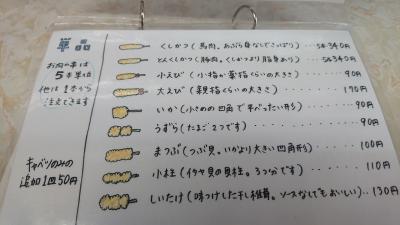 単品
お肉の串は
5本単位
他は1本から
注文できます
キャベツのみの
追加1皿50円
くしかつ(馬肉。あぶら身なしでさっぱり)‥‥5本340円
とんくしかつ(豚肉。くしかつより脂身あり)‥‥5本340円
小えび(小指か薬指くらいの大きさ)‥‥90円
大えび(親指くらいの大きさ)‥‥190円
いか(小さめの四角で平べったい形)‥‥90円
うずら(たまご2つです)‥‥90円
まつぶ(つぶ貝。いかより大きい四角形)‥‥100円
小柱(イタヤ貝の貝柱。3つ分です)‥‥110円
しいたけ(味つけした干し椎茸。ソースなしでもおいしい)‥‥130円